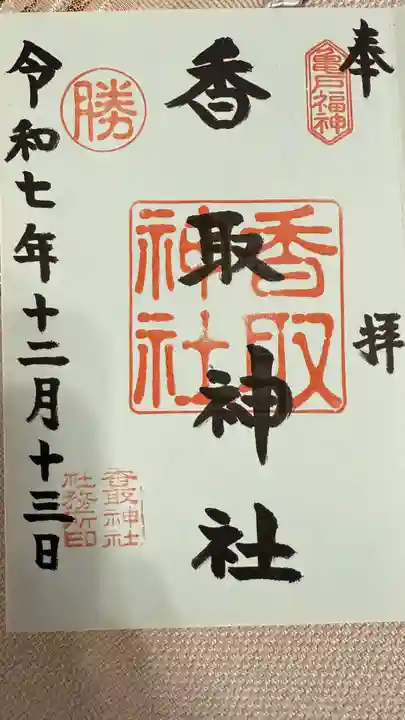 奉拝
亀戸福神
香取神社
香取
神社
勝
令和七年十二月十三日
香取神社
社務所印